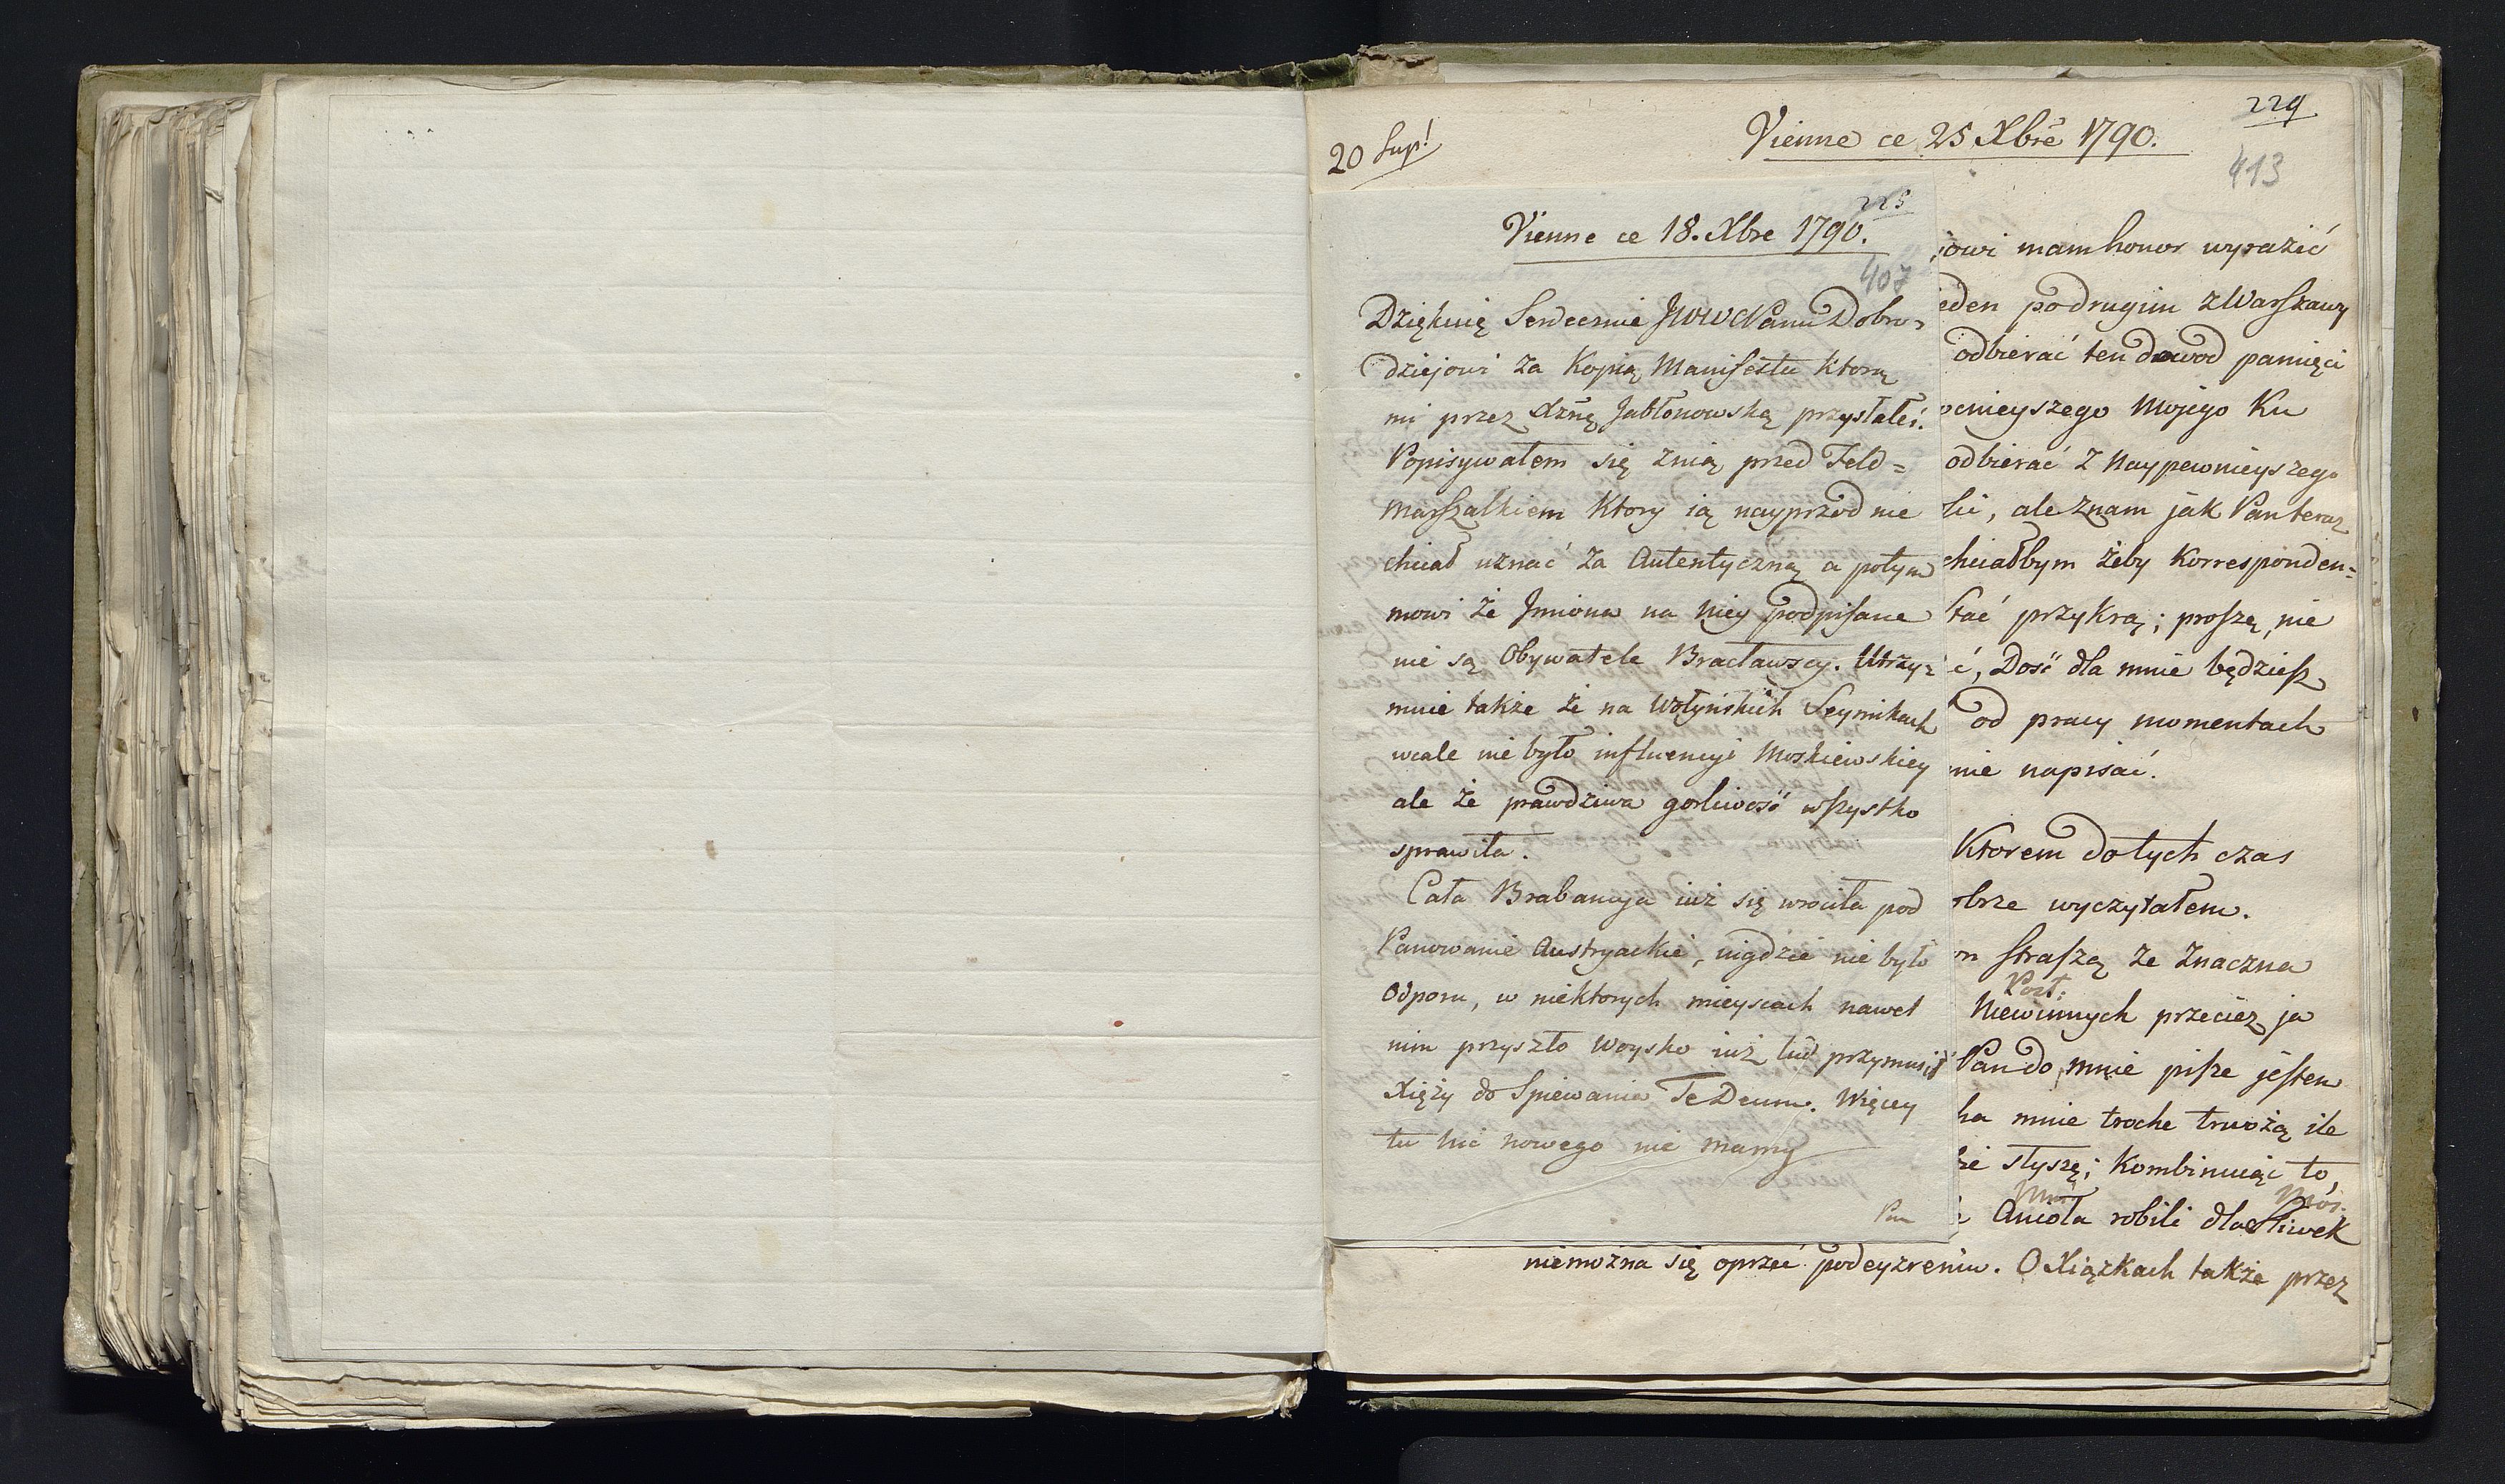 20 Sup!
Vienne ce 25 Xbre 1790.
229
413
225
Vienne ce 18. Xbre 1790.
407
Dziękuię Serdecznie JWWPanu Dobro-
dziejowi za Kopią Manifestu ktorą
mi przez Xżnę Jabłonowską przysłałeś.
Popisywałem się znią przed Feld=
Marszałkiem Ktory ią nayprzod nie
chciał uznać za Autentyczną a potym
mowi że Jmiona na Niey podpisane
nie są Obywatele Bracławscy. Utrzy=
muie także że na Wołyńskich Seymikach
wcale nie było influencyi Moskiewskiey
ale że prawdziwa gorliwość wszystko
sprawiła.
Cała Brabancya iuż się wrociła pod
Panowanie Austryackie, nigdzie nie było
Odporu, w niektorych mieyscach nawet
nim przyszło Woysko iuż lud przymusił
Xięży do Spiewania Te Deum. Więcey
tu nic nowego nie mamy
owi mam honor wyrazić
eden podrugim z Warszawy
odbierać ten dowod pamięci
ocnieyszego Mojego Ku
odbierać z Naypewnieyszego
ale znam jak Pan teraz
chciałbym żeby Korresponden=
stać przykrą; proszę, nie
ć, Dość dla mnie będziesz
od pracy momentach
nie napisać.
Ktorem dotych czas
obrze wyczytałem.
straszą ze Znaczna
Niewinnych przeciez ja
Pan do mnie pisze jestem
ha mnie troche trwożą ile
słyszę; Kombinuiąc to,
Anioła robili dla Sliwek
niemożna się oprzeć podeyzreniu. O Xiążkach także przez